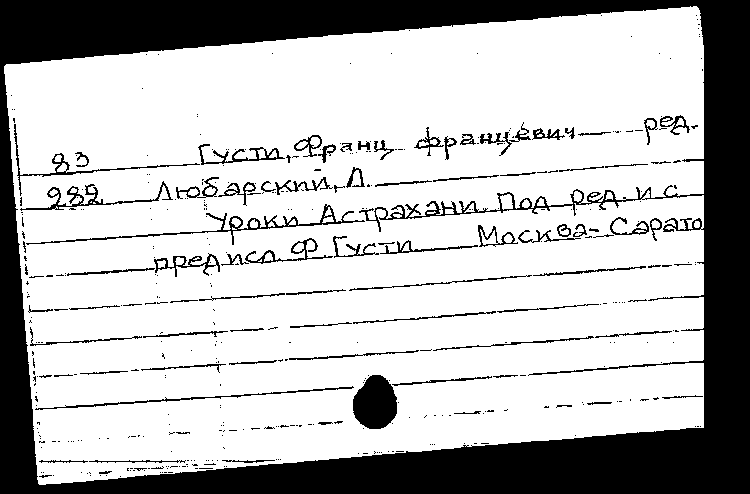 83 Густи, Франц Францевич ред.
282 Любарский, Л.
Уроки Астрахани. Под ред. и с
предисл Ф Густи Москва-Сарато